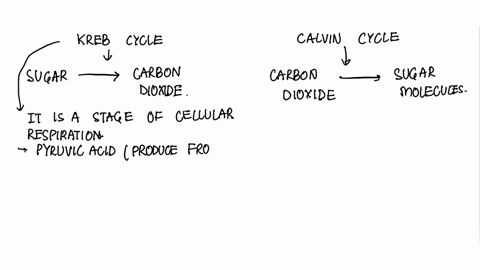 KREB CYCLE
SUGAR → CARBON
DIOXIDE.
IT IS A STAGE OF CELLULAR
RESPIRATION.
→ PYRUVIC ACID (PRODUCE FRO
CALVIN CYCLE
CARBON → SUGAR
DIOXIDE MOLECULES.